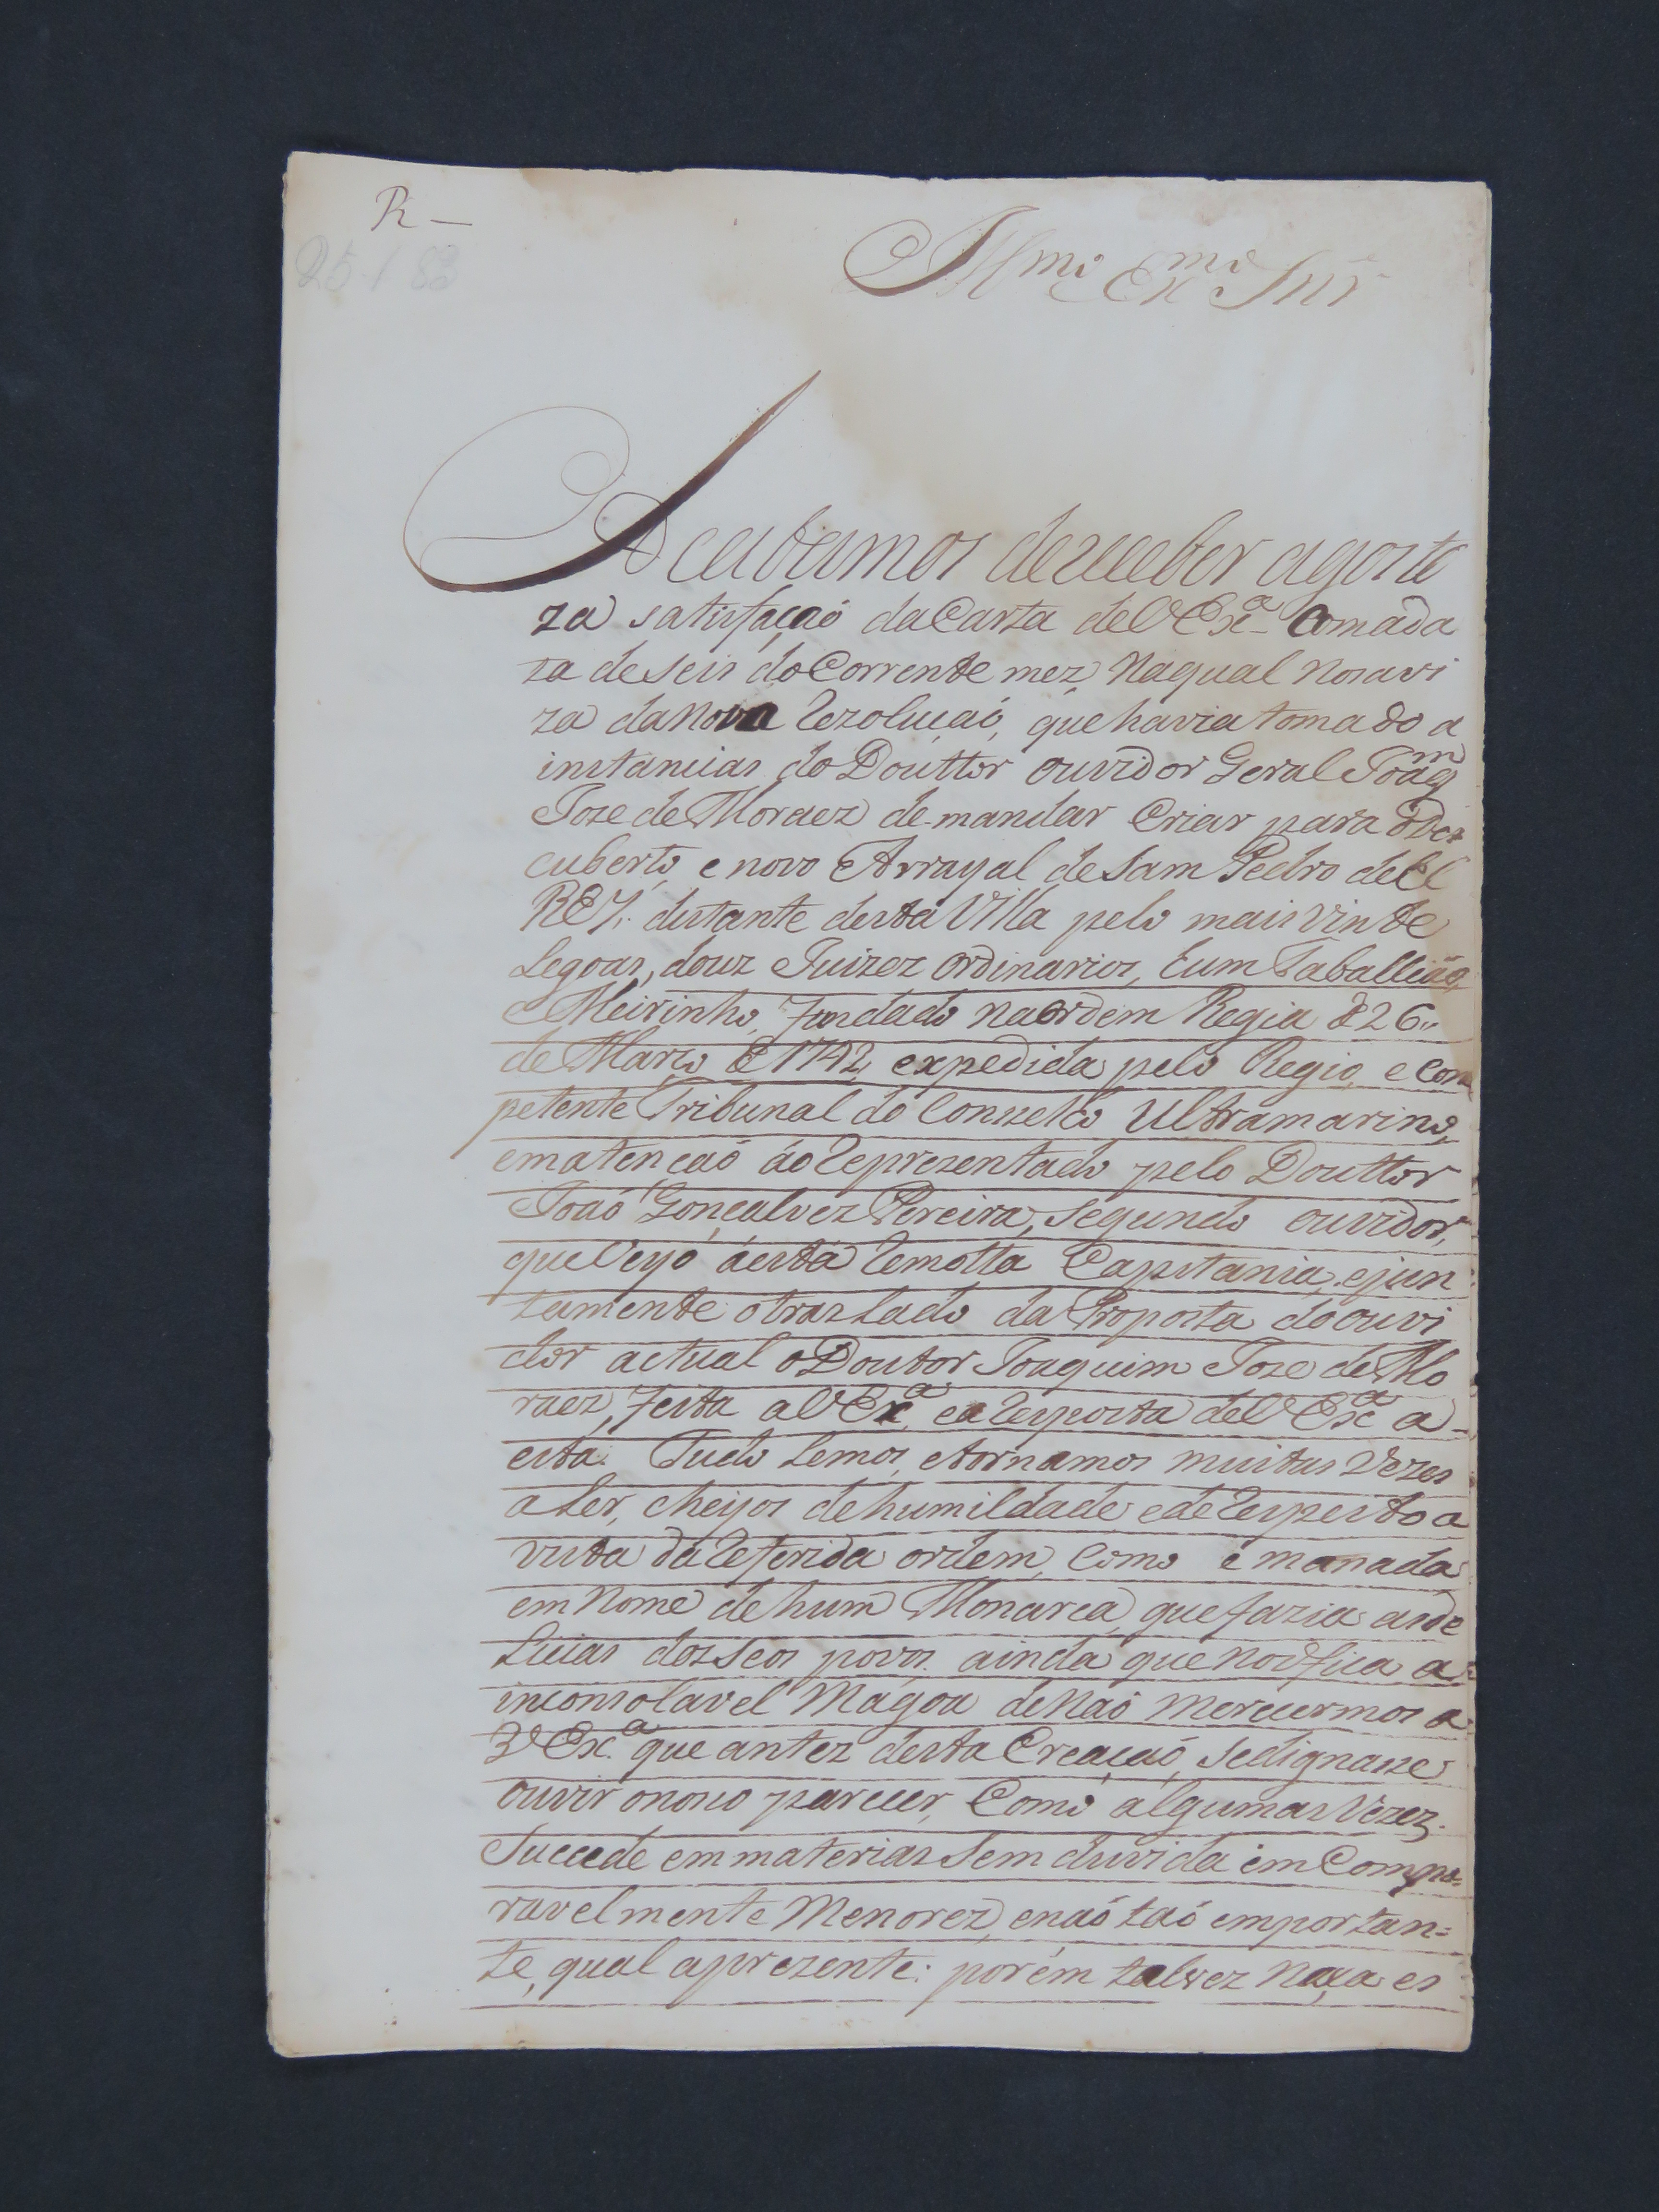 R —
25-1 83
Illmo Exmo Snr
Acabamos de receber a gosto
za satisfaçaó da Carta de V Exa Com a da
ta de seis do Corrente mez, Na qual Nos avi
za da Nova Rezoluçaó, que havia tomado a
instancias do Douttor ouvidor Geral Joaqm
Joze de Moraez de mandar Criar para o des
cuberto e novo Arrayal de Sam Pedro del
REY. distante desta Villa pelo mais vinte
Legoas, douz Juizez ordinarios, e um Taballiaó,
e Meirinho, fundado na ordem Regia de 26.
de Março de 1742, expedida pelo Regio, e Com
petente Tribunal do Conselho Ultramarino,
em atençaó ao Reprezentado pelo Douttor
Joaó Gonçalvez Pereira, segundo ouvidor,
que Veyo a esta Remotta Capitania, e jun
tamente o traslado da Proposta do ouvi
dor actual o Doutor Joaquim Joze de Mo
raez, feita a V Exa, e a Resposta de V Exa a
esta. Tudo Lemos, e tornamos muitas Vezes
a Ler, cheyos de humildade, e de Respeito a
vista da Referida ordem, Como emanada
em Nome de hum Monarca, que fazia as de
Licias dos seos povos. ainda que Nos fica a
inconsolavel Magoa de Naó Merecermos a
V Exa. que antez desta Creaçaó, se dignasse
ouvir o noso parecer, Como algumas Vezez
Succede em materias Sem duvida em Compa=
ravelmente Menorez, e naó taó emportan=
te, qual a prezente: porém talvez Naça es